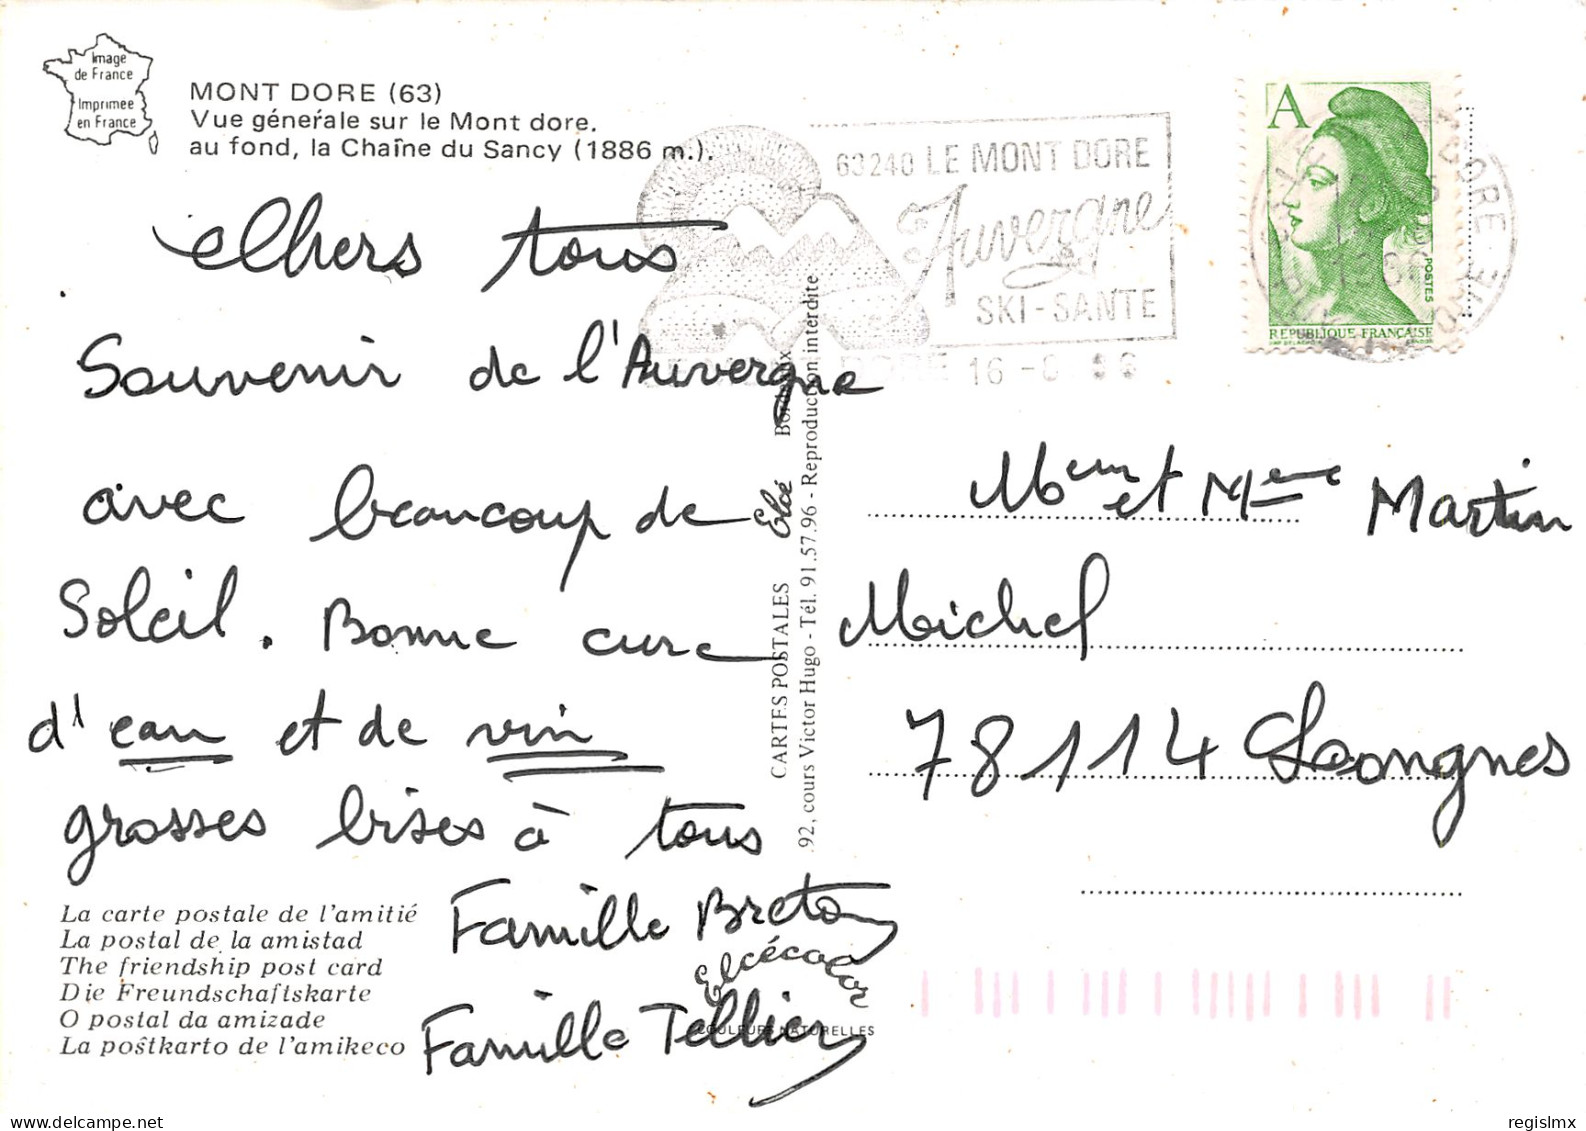 Image
de France
Imprimee
en France
MONT DORE (63)
Vue génerale sur le Mont dore.
au fond, la Chaîne du Sancy (1886 m.).
63240 LE MONT DORE
Auvergne
SKI-SANTE
16 -
A
POSTES
REPUBLIQUE FRANÇAISE
Chers tous
Souvenir de l'Auvergne
avec beaucoup de
Soleil. Bonne cure
d'eau et de vin
grosses bises à tous
Famille Breton
Famille Tellier
La carte postale de l'amitié
La postal de la amistad
The friendship post card
Die Freundschaftskarte
O postal da amizade
La poŝtkarto de l'amikeco
CARTES POSTALES Elcé
92, cours Victor Hugo - Tél. 91.57.96 - Reproduction interdite
Elcécolor
COULEURS NATURELLES
et Mme Martin
Michel
78114
regislmx